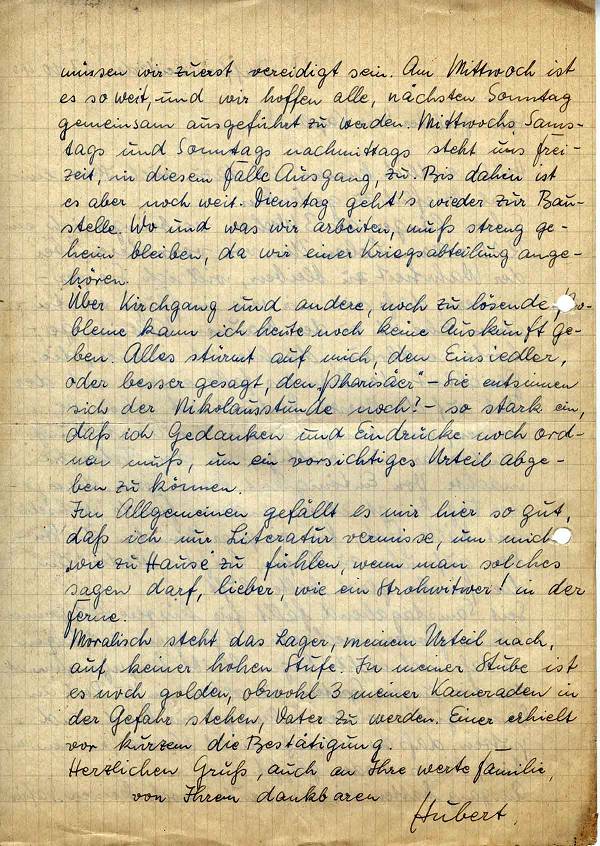 müssen wir zuerst vereidigt sein. Am Mittwoch ist
es soweit, und wir hoffen alle, nächsten Sonntag
gemeinsam ausgeführt zu werden. Mittwochs, Sams-
tags und Sonntags nachmittags steht uns Frei-
zeit, in diesem Falle Ausgang, zu. Bis dahin ist
es aber noch weit. Dienstag geht's wieder zur Bau-
stelle. Wo und was wir arbeiten, muß streng ge-
heim bleiben, da wir einer Kriegsabteilung ange-
hören.
Über Kirchgang und andere, noch zu lösende, Pro-
bleme kann ich heute noch keine Auskunft ge-
ben. Alles stürmt auf mich, den Einsiedler,
oder besser gesagt, den „Pharisäer" - Sie entsinnen
sich der Nikolausstunde noch? - so stark ein,
daß ich Gedanken und Eindrücke noch ord-
nen muß, um ein vorsichtiges Urteil abge-
ben zu können.
Im Allgemeinen gefällt es mir hier so gut,
daß ich nur Literatur vermisse, um mich
„wie zu Hause" zu fühlen, wenn man solches
sagen darf, lieber, wie ein Strohwitwer! in der
Ferne.
Moralisch steht das Lager, meinem Urteil nach,
auf keiner hohen Stufe. In meiner Stube ist
es noch golden, obwohl 3 meiner Kameraden in
der Gefahr stehen, Vater zu werden. Einer erhielt
vor kurzem die Bestätigung.
Herzlichen Gruß, auch an Ihre werte Familie,
von Ihrem dankbaren
Hubert.